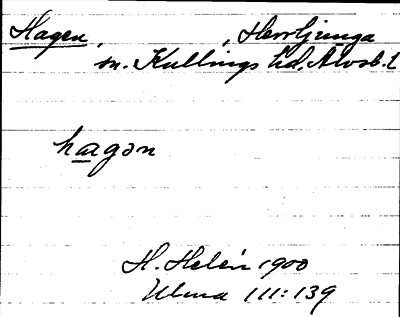 Hagen, , Herrljunga
sn. Kullings hd, Älvsb. l
hagən
H. Helén 1900
Ulma 111:139